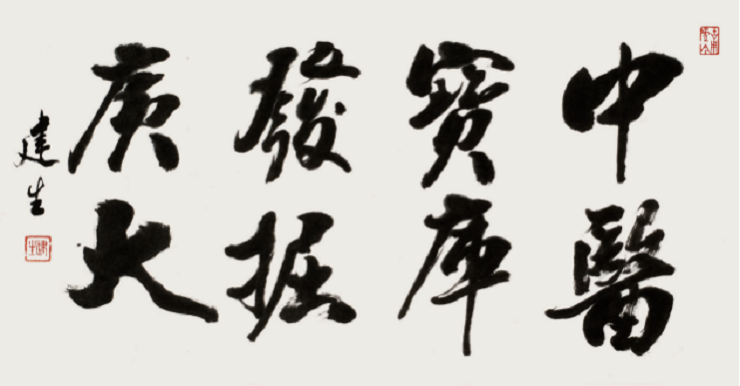 中醫
寶庫
發掘
廣大
建生